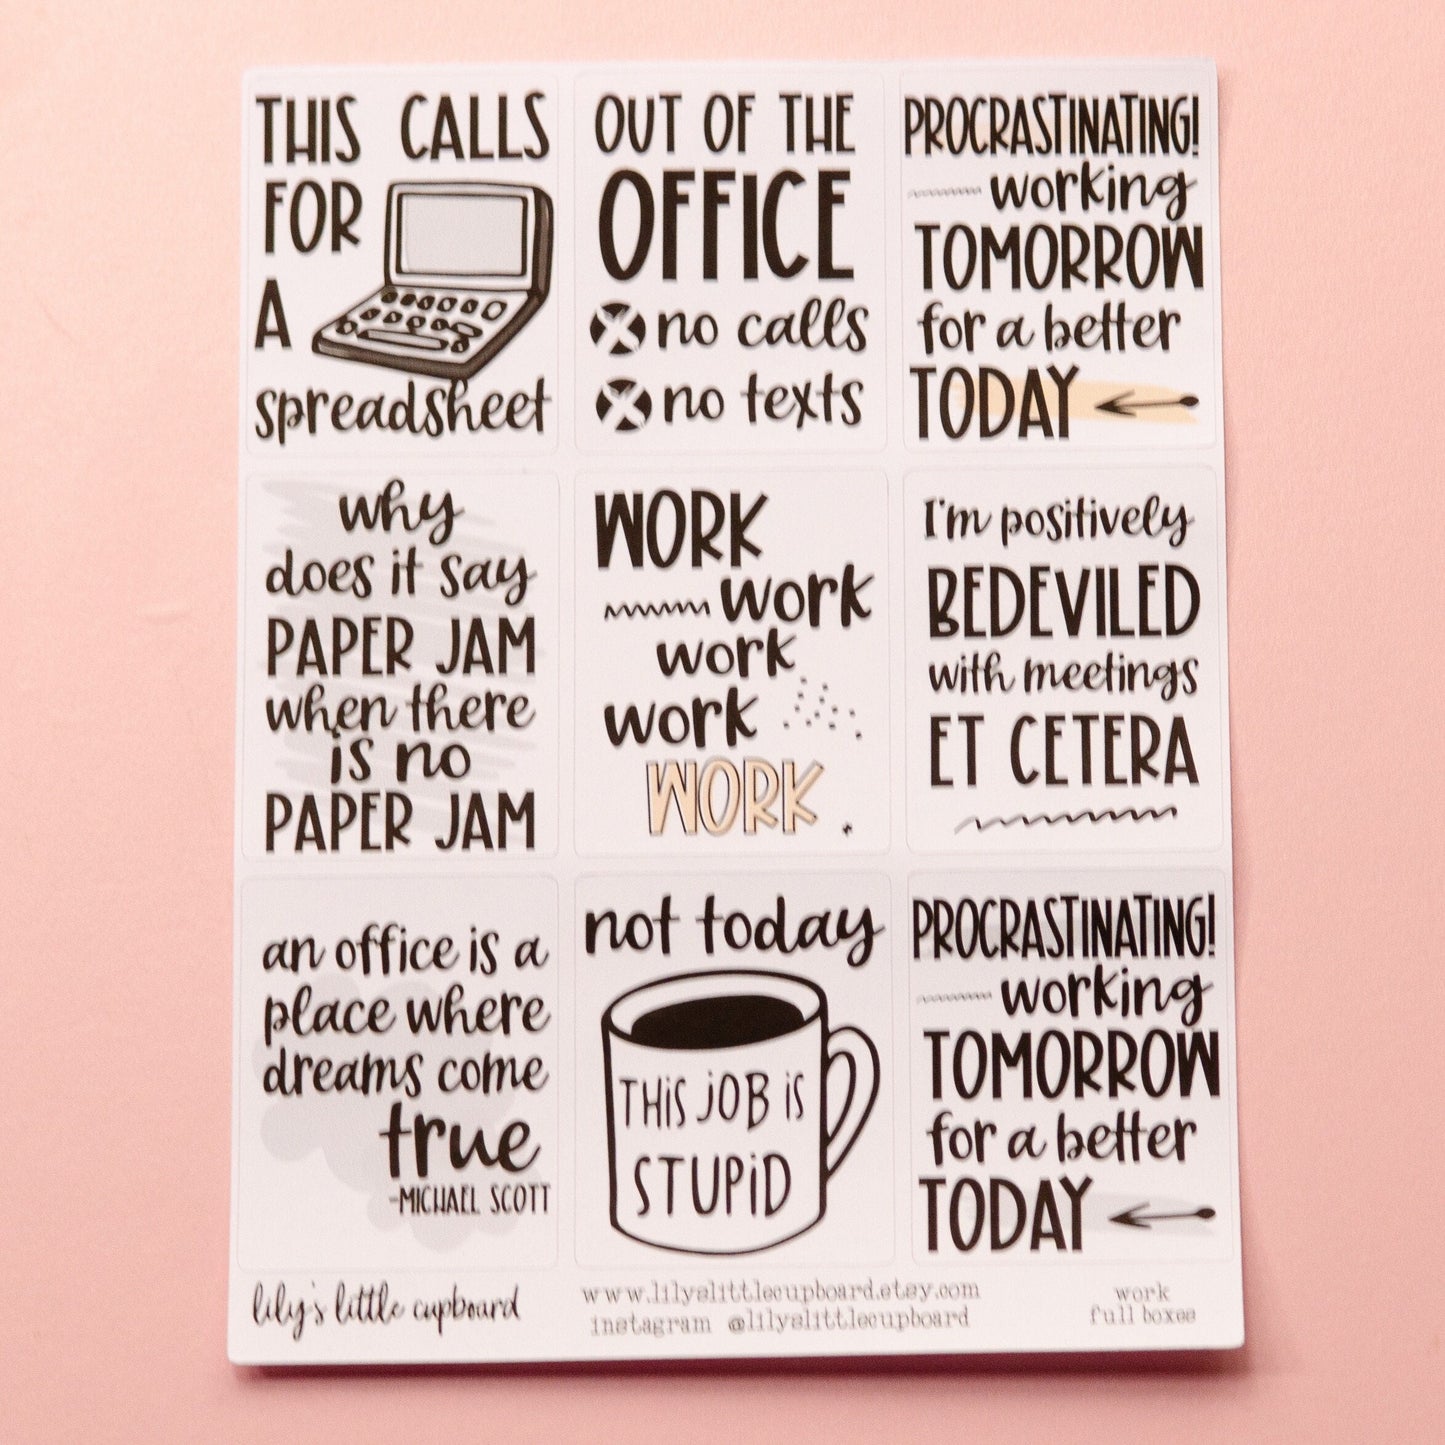 THIS CALLS
FOR
A
spreadsheet
OUT OF THE
OFFICE
no calls
no texts
PROCRASTINATING!
working
TOMORROW
for a better
TODAY
why
does it say
PAPER JAM
when there
is no
PAPER JAM
WORK
work
work
work
WORK
I'm positively
BEDEVILED
with meetings
ET CETERA
an office is a
place where
dreams come
true
-MICHAEL SCOTT
not today
THIS JOB IS
STUPID
PROCRASTINATING!
working
TOMORROW
for a better
TODAY
lily's little cupboard
www.lilyslittlecupboard.etsy.com
instagram @lilyslittlecupboard
work
full boxes